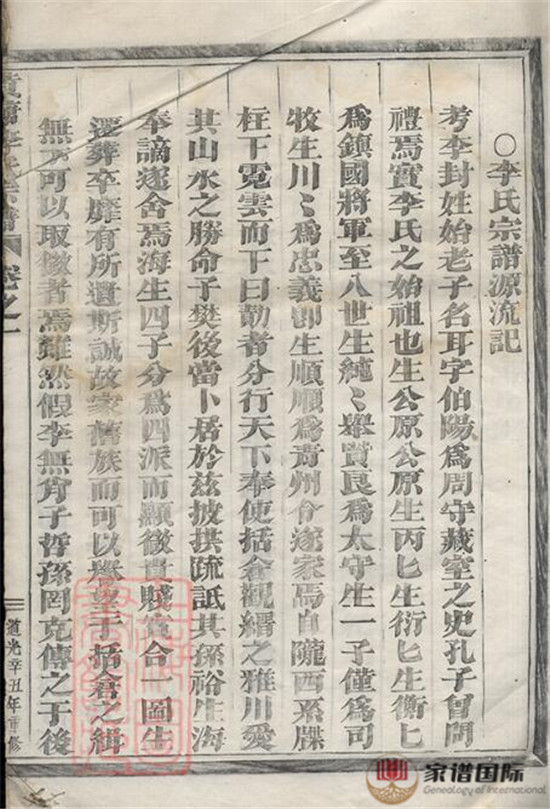 ○李氏宗譜源流記
考李封姓始老子名耳字伯陽爲周守藏室之史孔子曾問
禮焉實李氏之始祖也生公原公原生丙匕生衍匕生衡匕
爲鎮國將軍至八世生純〻舉賢良爲太守生一子僅爲司
牧生川〻爲忠義郎生順順爲青州令遂家焉自隴西系牒
柱下冕雲而下曰勛者分行天下奉使括倉觀縉之雅川愛
其山水之勝命子樊後當卜居於兹披拱疏詆其孫裕生海
奉謫逐舍焉海生四子分爲四派而顯微貴賤宜合一圖生
迁葬卒靡有所遺斯誠故家舊族而可以聯望于括倉之緝
無不可以取徵者焉雖然假李無肖子哲孫罔克傳之于後
李氏宗譜
卷之一
道光辛丑年重修
家谱国际
Genealogy of International